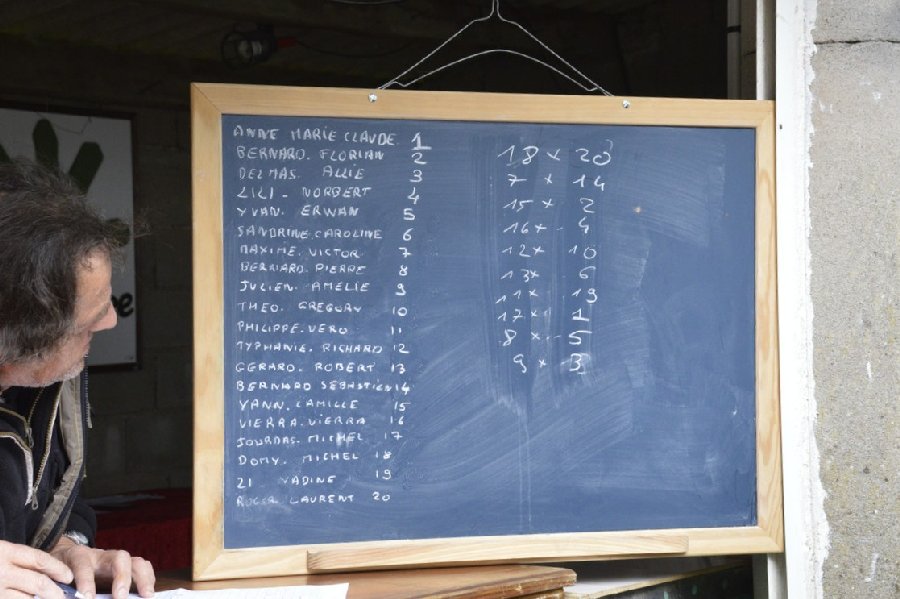 ANNE MARIE CLAUDE 1
BERNARD. FLORIAN 2
DELMAS. ALLIE 3
LILI - NORBERT 4
YVAN. ERWAN 5
SANDRINE. CAROLINE 6
MAXIME. VICTOR 7
BERNARD. PIERRE 8
JULIEN. AMELIE 9
THEO. GREGORY 10
PHILIPPE. VERO 11
TYPHANIE. RICHARD 12
GERARD. ROBERT 13
BERNARD SEBASTIEN 14
YANN. CAMILLE 15
VIERRA. VIERRA 16
JOURDAS. MICHEL 17
DOMY. MICHEL 18
ZI NADINE 19
ROGER LAURENT 20
18 x 20
7 x 14
15 x 2
16 x 4
12 x 10
13 x 6
11 x 19
17 x 1
8 x 5
9 x 3